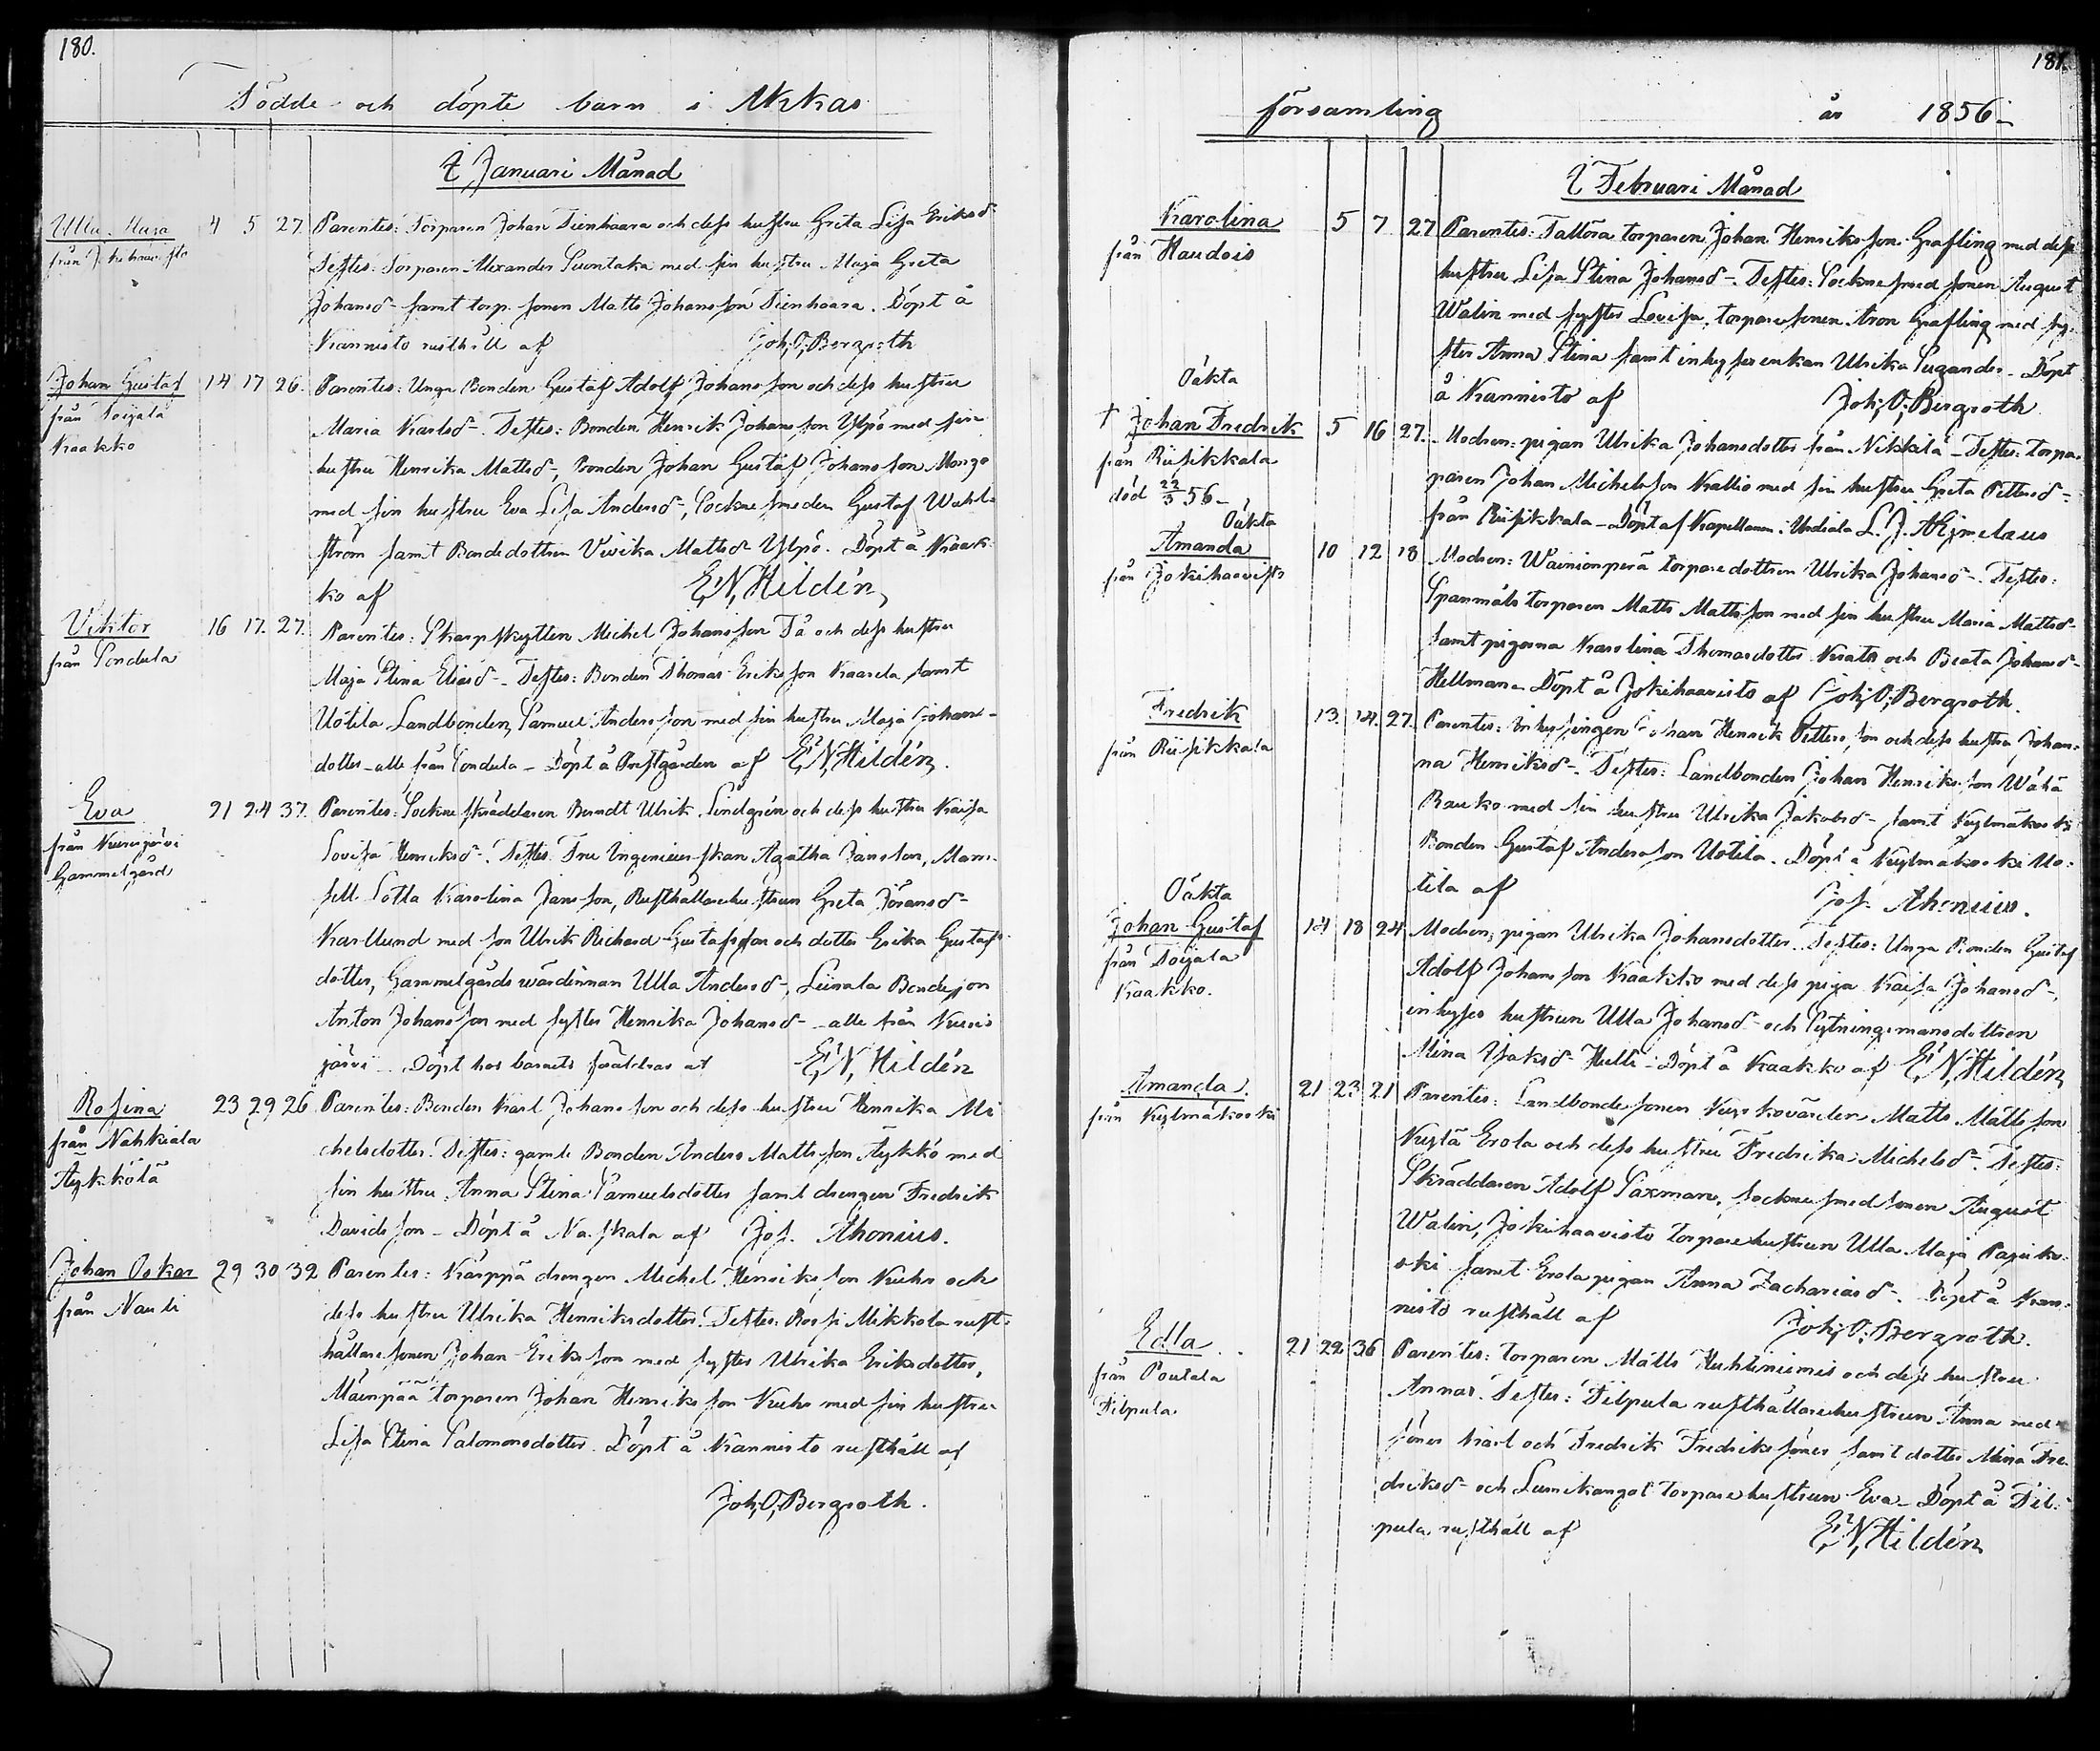 180.
Födde och döpte barn i Akkas
I Januari Månad
Ulla Maja
från Jokihaavisto
4 5 27
Parentes: Torparen Johan Tienhaara och dess hustru Greta Lisa Eriksdr
Testes: Torparen Alexander Suontaka med sin hustru Maja Greta
Johansdr samt torp. sonen Matts Johansson Tienhaara. Döpt å
Kannisto rusthåll af Joh: O: Bergroth
Johan Gustaf
från Toijala
Kaakko
14 17 26.
Parentes: Unga Bonden Gustaf Adolf Johansson och dess hustru
Maria Karlsdr. Testes: Bonden Henrik Johansson Ylpö med sin
hustru Henrika Mattsdr, Bonden Johan Gustaf Johansson Monge
med sin hustru Eva Lisa Andersdr, Sockne smeden Gustaf Wahl-
ström samt Bondedottren Vivika Mattsdr Ylpö. Döpt å Kaak-
ko af E: N: Hildén
Viktor
från Sondula
16 17. 27.
Parentes: Skarpskytten Michel Johansson Tå och dess hustru
Maja Stina Eliædr. Testes: Bonden Thomas Eriksson Kaarela samt
Uotila Landbonden Samuel Andersson med sin hustru Maja Johans-
dotter - alle från Sondula - Döpt å Prestgården af E: N: Hildén.
Eva
från Kurisjärvi
Gammelgård
21 24 37.
Parentes: Sockne skräddaren Berndt Ulrik Lindgrén och dess hustru Kaisa
Lovisa Henriksdr. Testes Fru Ingenieurskan Agatha Jansson, Mam-
sell Lotta Karolina Jansson, Rusthållarehustrun Greta Göransdr
Karllund med son Ulrik Richard Gustafsson och dotter Erika Gustafs-
dotter, Gammelgårds wärdinnan Ulla Andersdr, Liinala Bondeson
Anton Johansson med syster Henrika Johansdr - alle från Kuris
järvi. Döpt hos barnets föräldrar af E: N: Hildén
Rosina
från Nahkiala
Äykkölä
23 29 26
Parentes: Bonden Karl Johansson och dess hustru Henrika Mi
chelsdotter. Testes: gamle Bonden Anders Mattsson Äykkö med
sin hustru Anna Stina Samuelsdotter samt drengen Fredrik
Davidsson - Döpt å Naskala af Jos. Ahonius.
Johan Oskar
från Nauli
29 30 32
Parentes: Karppä drengen Michel Henriksson Kuhr och
dess hustru Ulrika Henriksdotter. Testes: Rossi Mikkola rust-
hållare sonen Johan Eriksson med syster Ulrika Eriksdotter,
Mäenpää torparen Johan Henriksson Kuhr med sin hustru
Lisa Stina Salomonsdotter. Döpt å Kannisto rusthåll af
Joh: O: Bergroth.
181.
församling år 1856.
I Februari Månad
Karolina
från Haudois
5 7 27
Parentes: Tattora torparen Johan Henriksson Grafling med dess
hustru Lisa Stina Johansdr. Testes: Sockne smed sonen August
Walin med syster Lovisa, torparesonen Aron Grafling med sy-
ster Anna Stina samt inhysesenkan Ulrika Sugander. Döpt
å Kannisto af Joh: O: Bergroth
Oäkta
† Johan Fredrik
från Riisikkala
död 22/3 56
5 16 27.
Modren: pigan Ulrika Johansdotter från Nikkilä - Testes: Torpa-
paren Johan Michelsson Kallio med sin hustru Greta Pettersdr
från Riisikkala - Döpt af Kapellanen i Urdiala L. J. Akimelaus
Oäkta
Amanda
från Jokihaavisto
10 12 18
Modren: Wainionperä torparedottren Ulrika Johansdr. Testes:
Spanmåls torparen Matts Mattsson med sin hustru Maria Mattsdr
samt pigorna Karolina Thomasdotter Krats och Beata Johansdr
Hellman. Döpt å Jokihaavisto af Joh: O: Bergroth.
Fredrik
från Riisikkala
13. 14. 27.
Parentes: Inhysingen Johan Henrik Pettersson och dess hustru Johan-
na Henriksdr. Testes: Landbonden Johan Henriksson Wähä
Rauko med sin hustru Ulrika Jakobsdr samt Kylmäkoski
Bonden Gustaf Andersson Uotila. Döpt å Kylmäkoski Uo-
tila af Jos. Ahonius.
Oäkta
Johan Gustaf
från Toijala
Kaakko.
14 18 24
Modren: pigan Ulrika Johansdotter. Testes: Unga Bonden Gustaf
Adolf Johansson Kaakko med dess piga Kaisa Johansdr,
inhyses hustrun Ulla Johansdr och Sytningsmansdottren
Mina Isaksdr Hulli - Döpt å Kaakko af E: N: Hildén
Amanda
från Kylmäkoski
21 23 21
Parentes: Landbonde sonen Kyrkovärden Matts Mattsson
Kylä Erola och dess hustru Fredrika Michelsdr. Testes:
Skräddaren Adolf Saxman, sockne smedsonen August
Walin, Jokihaavisto torpare hustrun Ulla Maja Pajuko-
ski samt Erola pigan Anna Zachariasdr. Döpt å Kan-
nisto rusthåll af Joh: O: Bergroth.
Edla
från Pontela
Filpula
21 22 36
Parentes: Torparen Matts Huhtiniemis och dess hustru
Annas. Testes: Filpula rusthållarehustrun Anna med
söner Karl och Fredrik Fredrikssöner samt dotter Mina Fre-
driksdr och Lumikangot torparehustrun Eva - Döpt å Fil-
pula rusthåll af E: N: Hildén